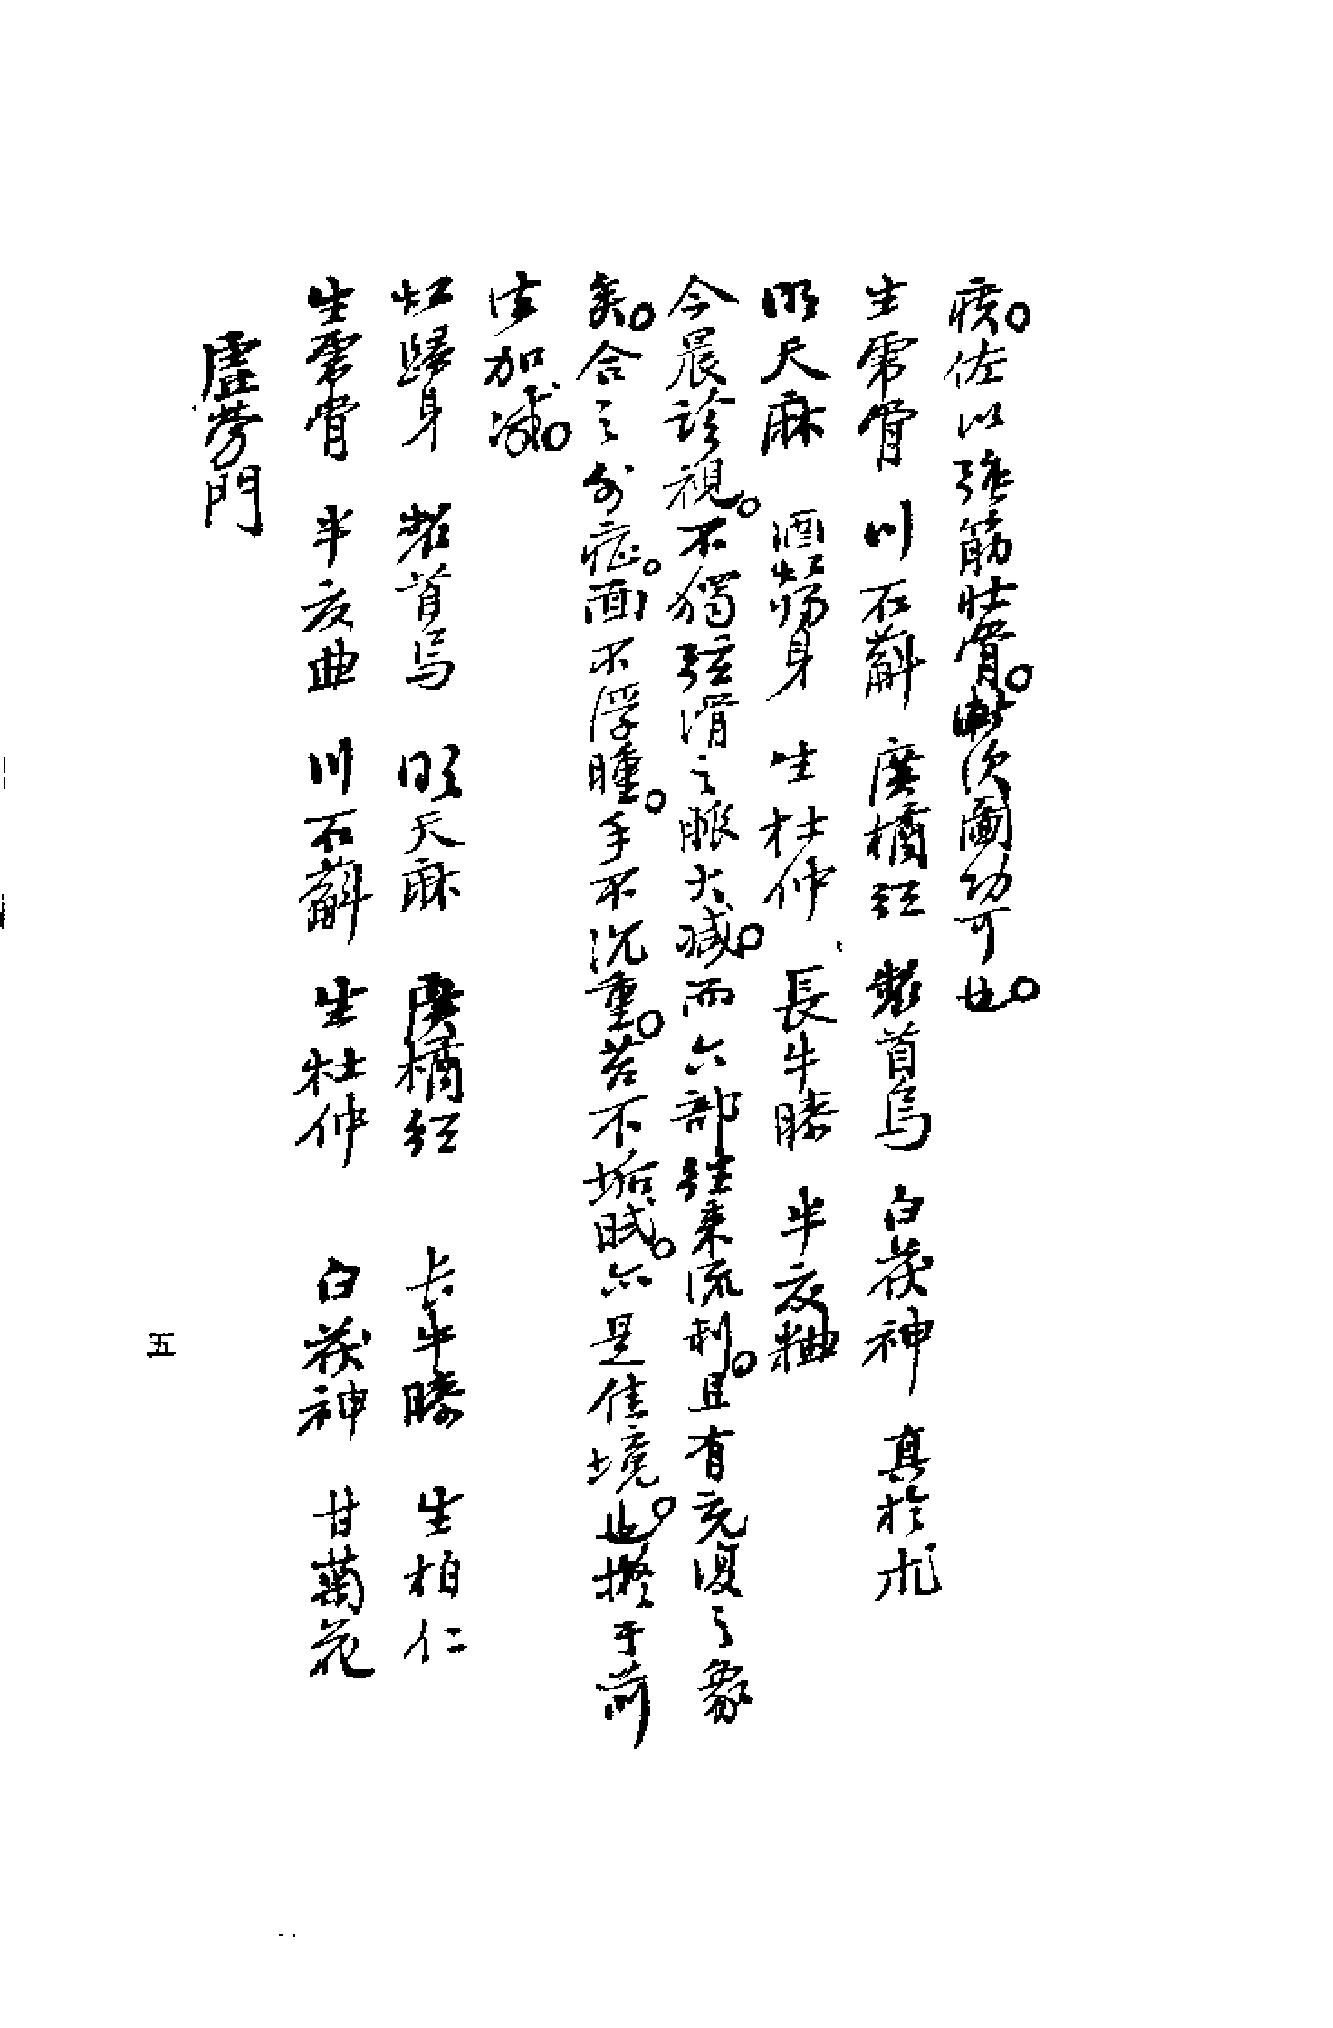 痰。佐以強筋壯骨。漸次圖功可也。
生虎骨 川石斛 廣橘紅 製首烏 白茯神 真於朮
明天麻 酒炒歸身 生杜仲 長牛膝 半夏麯
今晨診視。不獨弦滑之脈大減。而六部往來流利。且有充復之象
矣。合之外症。面不浮腫。手不沉重。苔不垢膩。亦是佳境也。擬于前
法加減。
炒歸身 製首烏 明天麻 廣橘紅 長牛膝 生柏仁
生虎骨 半夏曲 川石斛 生杜仲 白茯神 甘菊花
虛勞門
五